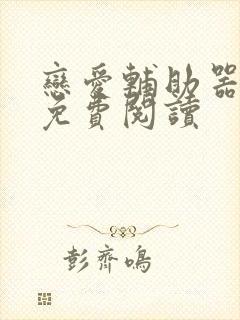 戀愛輔助器
免費閱讀
彭齊鳴